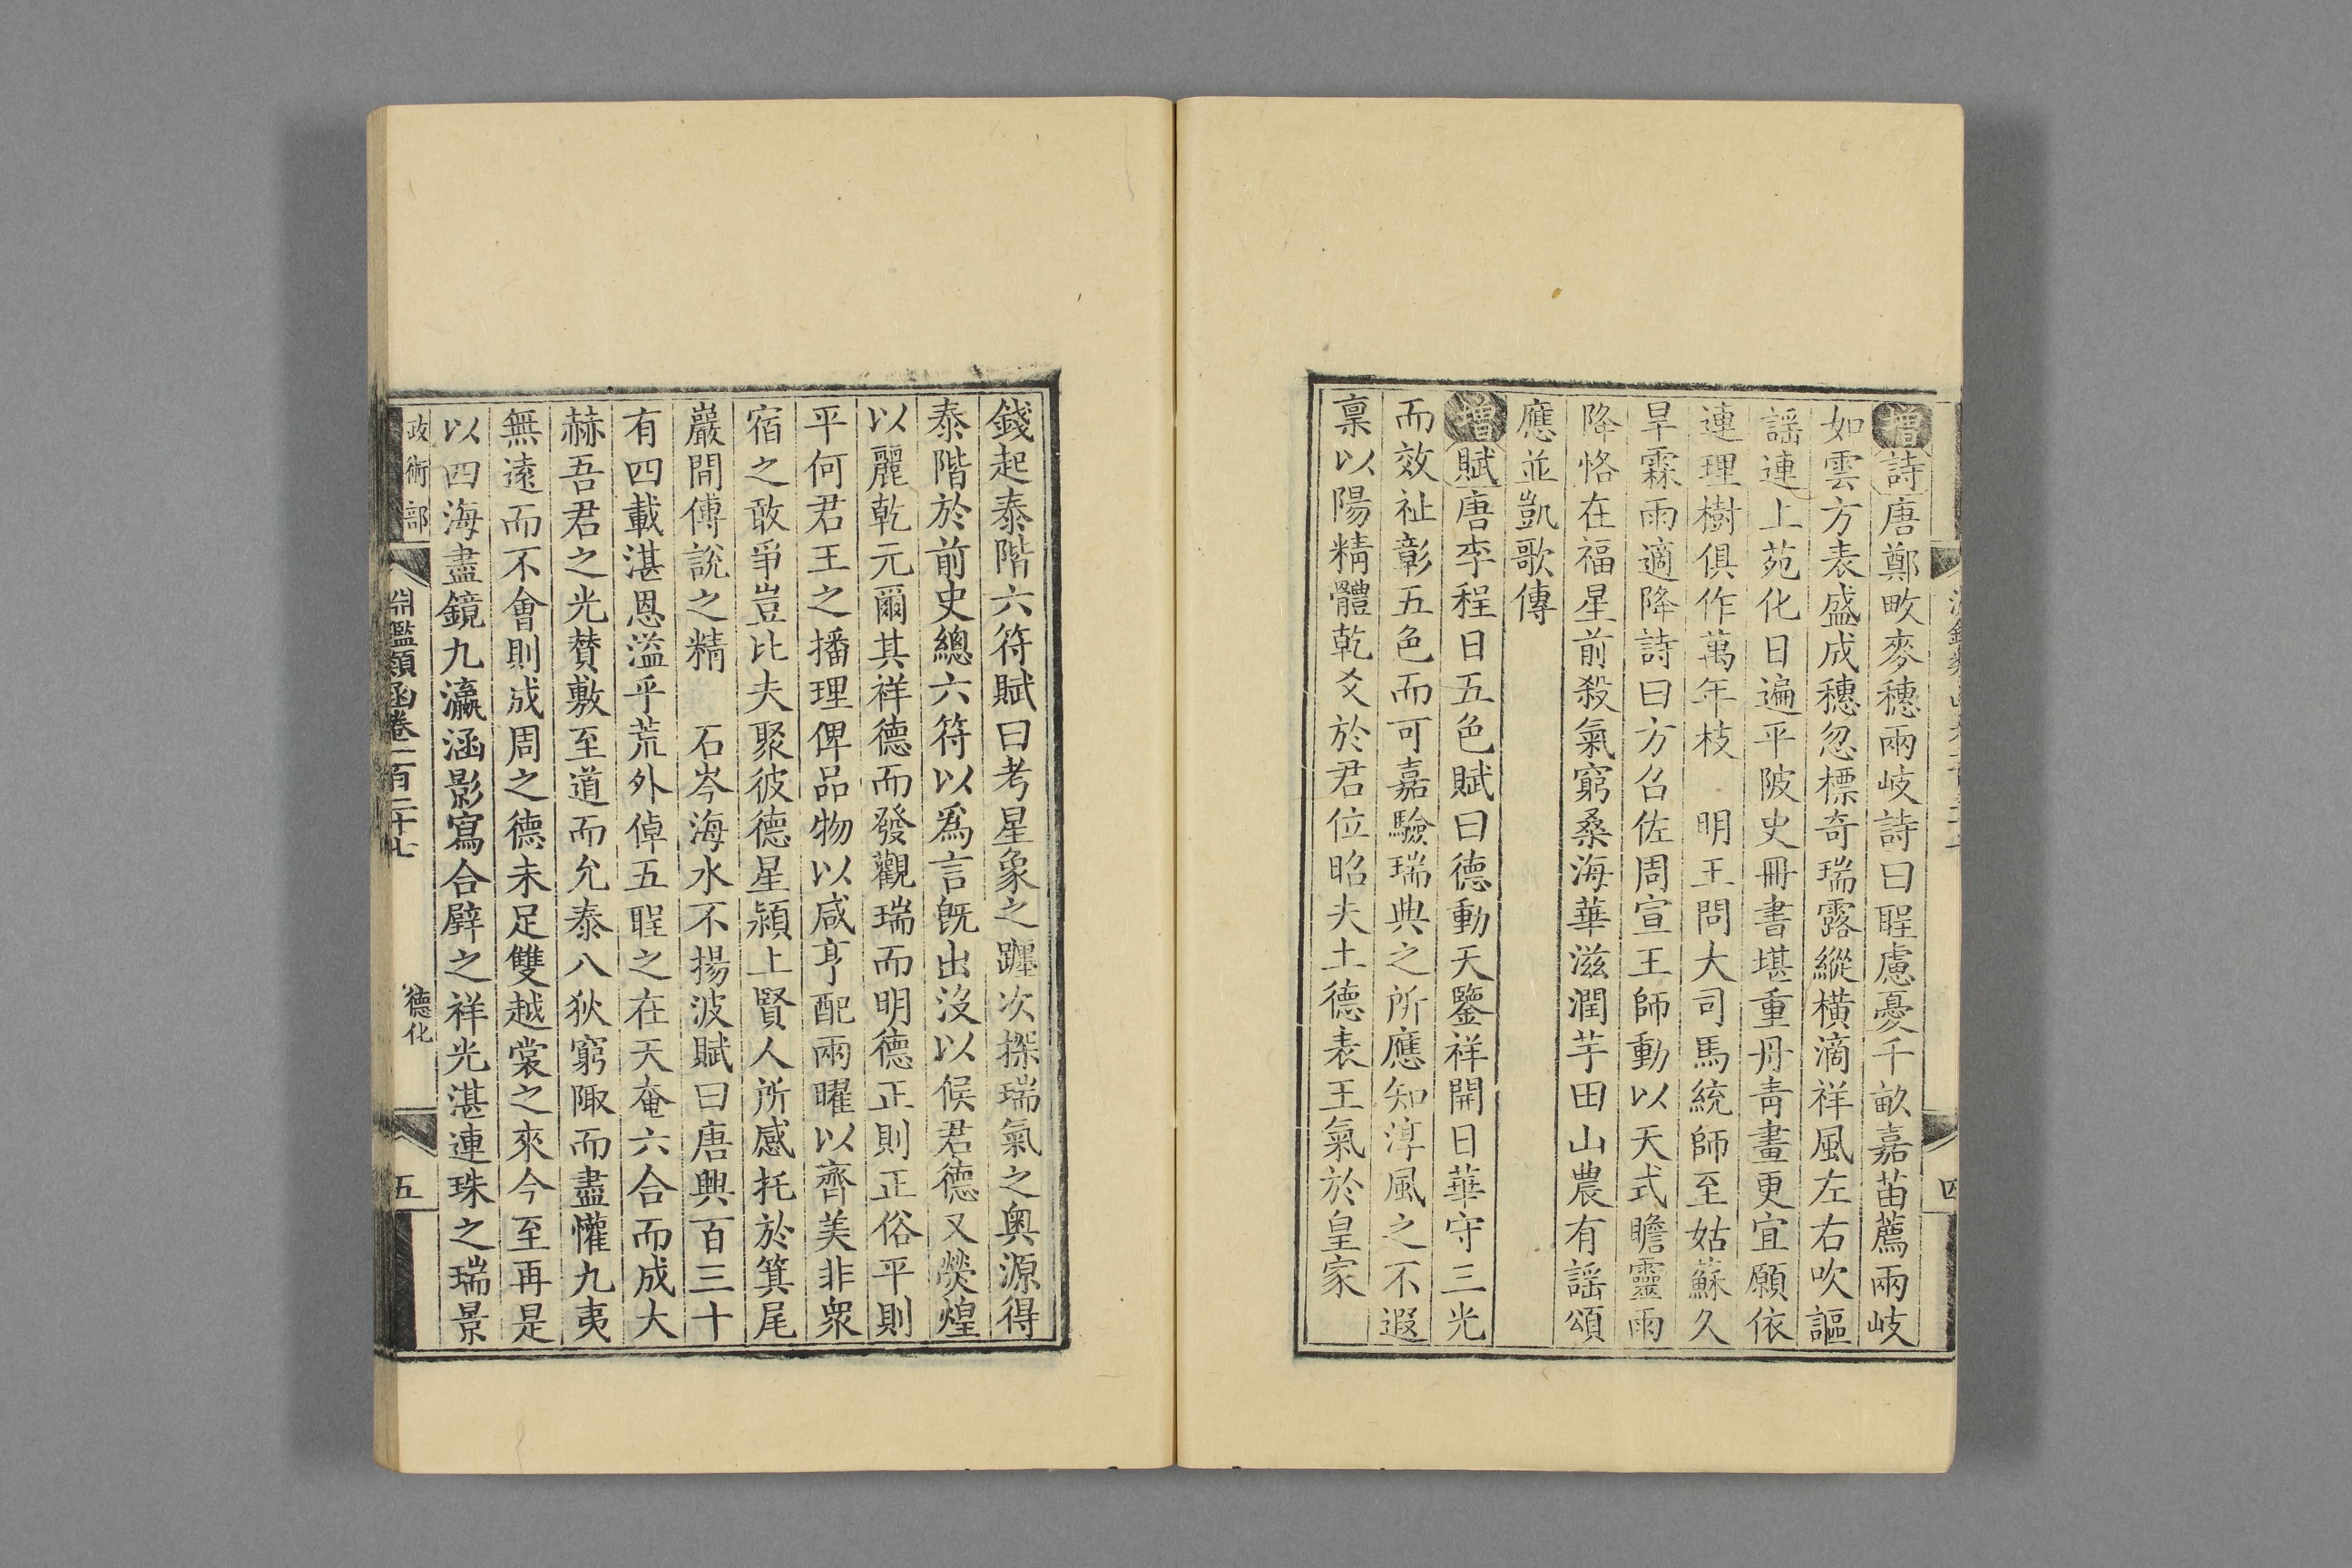 增詩唐鄭畋麥穗兩岐詩曰聖慮憂千畝嘉苗薦兩岐
如雲方表盛成穗忽標奇瑞露縱橫滴祥風左右吹謳
謡連上苑化日遍平陂史冊書堪重丹青畫更宜願依
連理樹俱作萬年枝　明王問大司馬統師至姑蘇久
旱霖雨適降詩曰方召佐周宣王師動以天式瞻靈雨
降恪在福星前殺氣窮桑海華滋潤芋田山農有謡頌
應並凱歌傳
增賦唐李程日五色賦曰德動天鑒祥開日華守三光
而效祉彰五色而可嘉驗瑞典之所應知淳風之不遐
稟以陽精體乾爻於君位昭夫土德表王氣於皇家
錢起泰階六符賦曰考星象之躔次探瑞氣之奥源得
泰階於前史總六符以爲言旣出沒以候君德又熒煌
以麗乾元爾其祥德而發觀瑞而明德正則正俗平則
平何君王之播理俾品物以咸亨配兩曜以齊美非衆
宿之敢爭豈比夫聚彼德星潁上賢人所感托於箕尾
巖間傅說之精　石岑海水不揚波賦曰唐興百三十
有四載湛恩溢乎荒外倬五聖之在天奄六合而成大
赫吾君之光贊敷至道而允泰八狄窮陬而盡懽九夷
無遠而不會則成周之德未足雙越裳之來今至再是
以四海盡鏡九瀛涵影寫合璧之祥光湛連珠之瑞景
政術部　淵鑑類函卷一百二十七　德化　五